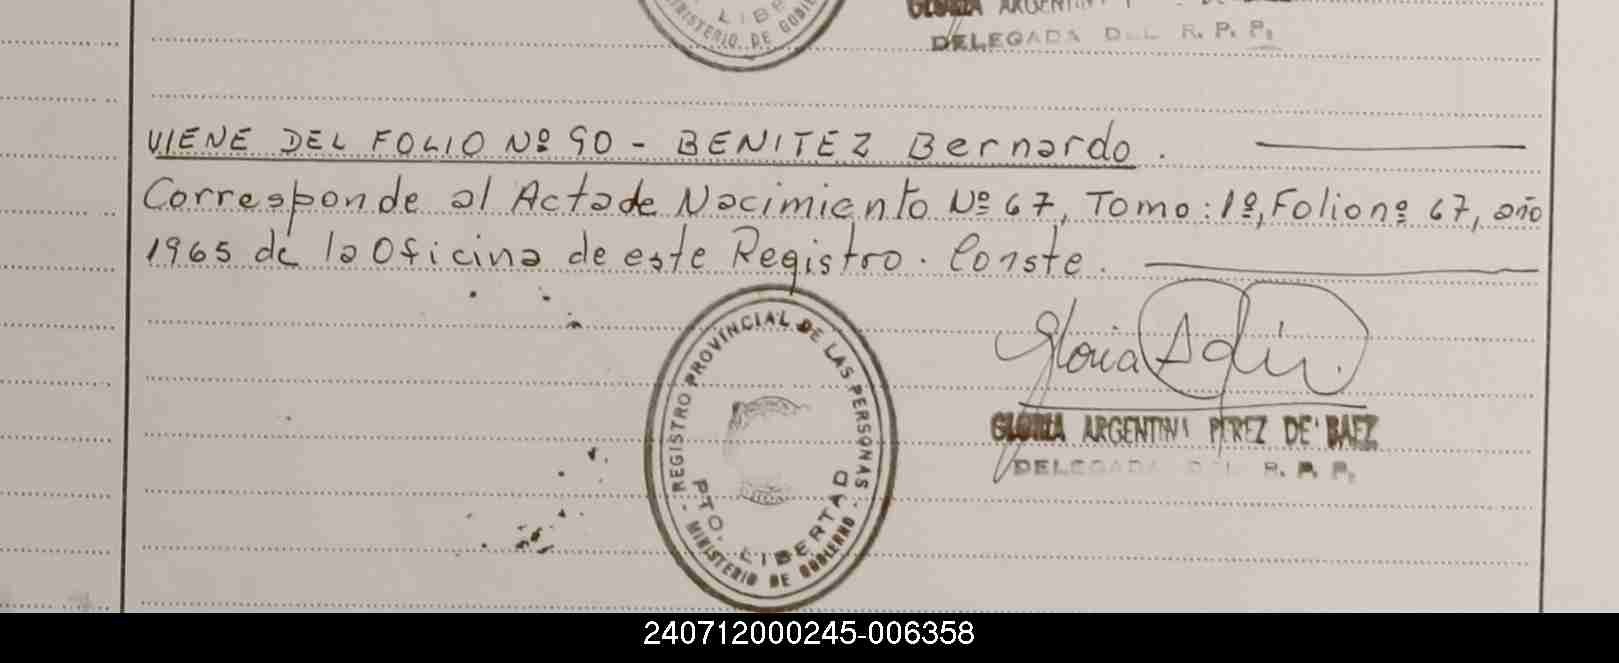 LIBE
MINISTERIO DE GOBIE
GLORIA ARGENTIN
DELEGADA DEL R. P. P.
VIENE DEL FOLIO Nº 90 - BENITEZ Bernardo.
Corresponde al Acta de Nacimiento Nº 67, Tomo: 1º, Folio nº 67, año
1965 de la Oficina de este Registro. Conste.
REGISTRO PROVINCIAL DE LAS PERSONAS
PTO. LIBERTAD
- MINISTERIO DE GOBIERNO -
Gloria
GLORIA ARGENTINA PEREZ DE BAEZ
DELEGADA DEL R. P. P.
240712000245-006358